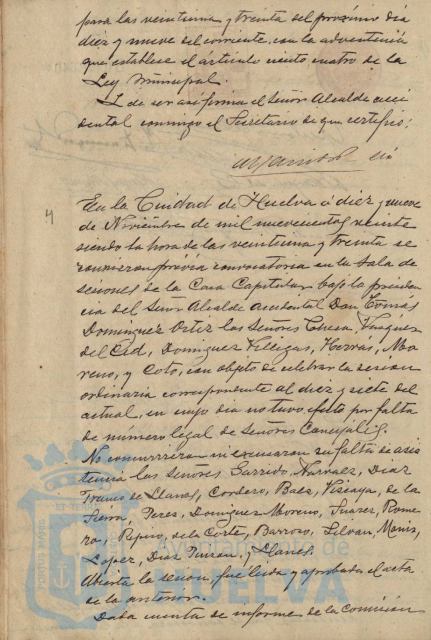 para las veintiuna y treinta del proximo dia
diez y nueve del corriente, con la advertencia
que establece el articulo ciento cuatro de la
Ley Municipal.
Y de ser asi firma el Señor Alcalde acci
dental conmigo el Secretario de que certifico:
4
En la Ciudad de Huelva á diez y nueve
de Noviembre de mil novecientos veinte
siendo la hora de las veintiuna y treinta se
reunieron previa convocatoria en la Sala de
sesiones de la Casa Capitular bajo la presiden
cia del Señor Alcalde accidental Don Tomás
Dominguez Ortiz los Señores Vazquez
del Cid, Dominguez Villegas, Herrás, Mo
reno, y Coto, con objeto de celebrar la sesion
ordinaria correspondiente al diez y siete del
actual, en cuyo dia no tuvo efecto por falta
de número legal de Señores Concejales.
No concurrieron ni excusaron su falta de asis
tencia los Señores Garrido, Narvaez, Diaz
Franco de Llanos, Cordero, Baez, Vizcaya, de la
Sierra, Perez, Dominguez Moreno, Suarez, Rome
ro, de la Corte, Barroso, Silvan,
Lopez, Diaz y Llanes.
Abierta la sesion, fue leida y aprobada el acta
de la anterior.
Dada cuenta de informe de la comision
PORTUS MARIS
HUELVA